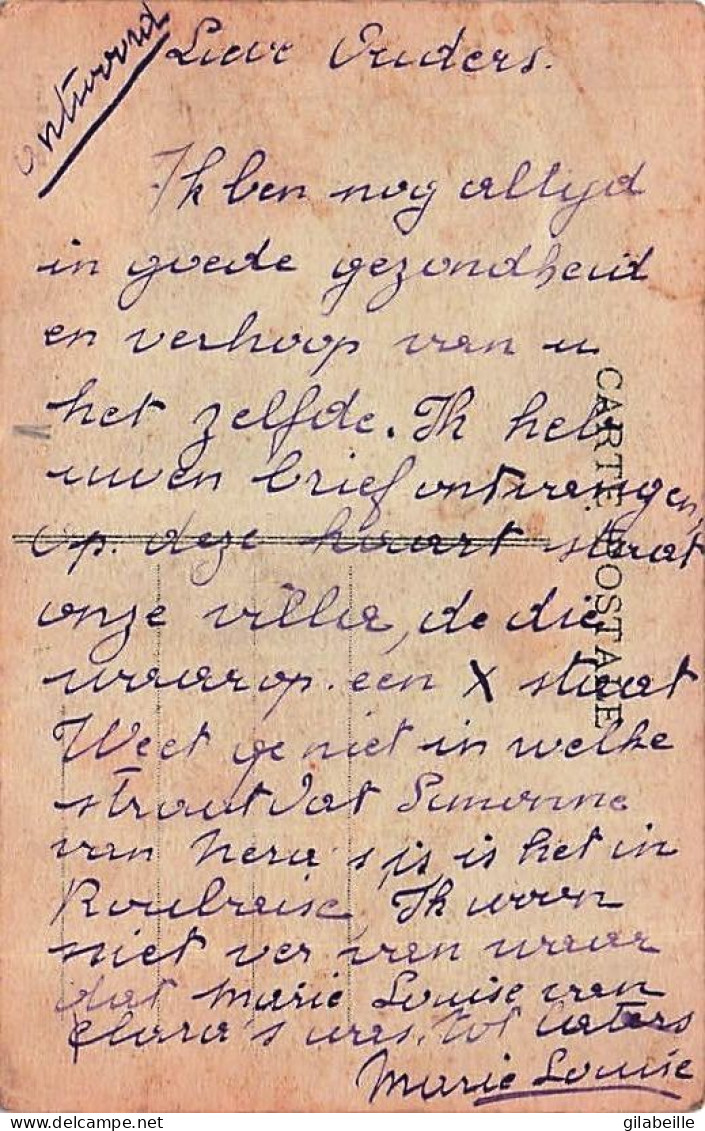 antwoord
Lieve Ouders.
Ik ben nog altijd
in goede gezondheid
en verhoop van u
het zelfde. Ik heb
uwen brief ontvangen,
op deze kaart staat
onze villa, de die
waarop een X staat
Weet ge niet in welke
straat dat Simonne
van Nera's is, is het in
Roubaise, Ik woon
niet ver van waar
dat Marie Louise van
Clara's was. tot laters
Marie Louise
CARTE POSTALE
gilabeille